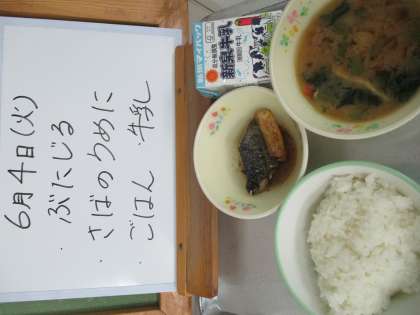 6月4日(火)
・ぶたじる
・さばのうめに
・ごはん ・牛乳
牛乳